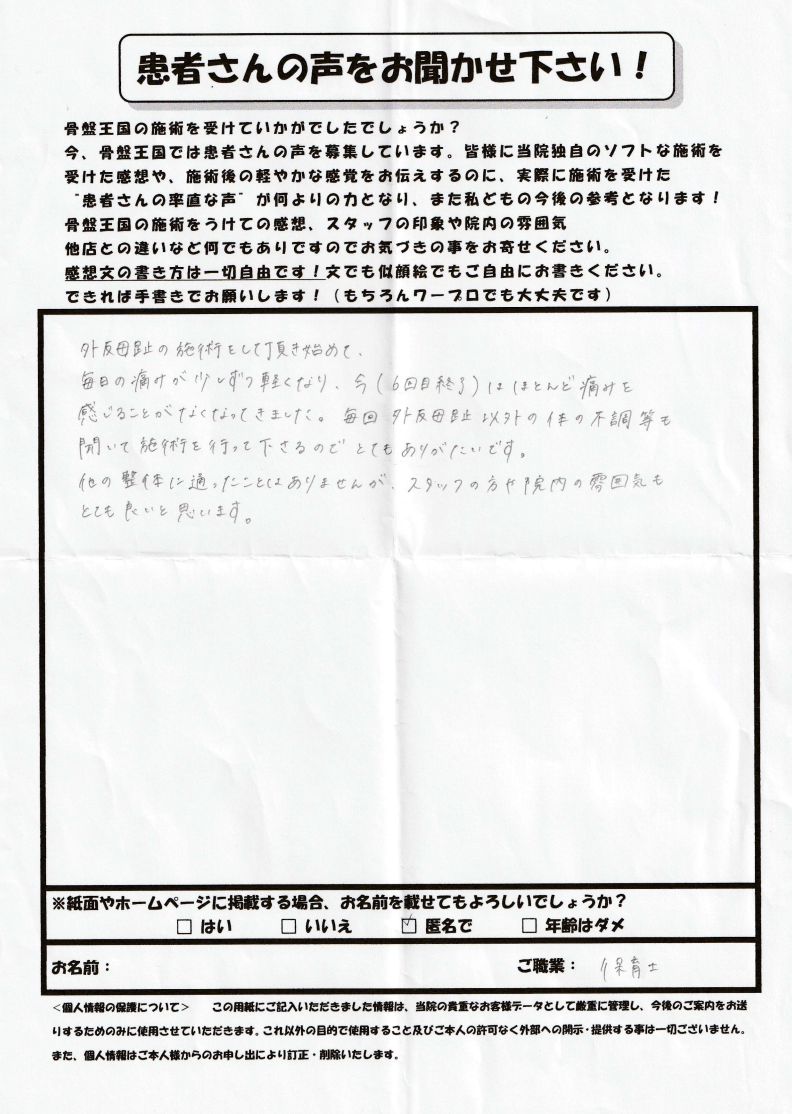 患者さんの声をお聞かせ下さい！
骨盤王国の施術を受けていかがでしたでしょうか？
今、骨盤王国では患者さんの声を募集しています。皆様に当院独自のソフトな施術を
受けた感想や、施術後の軽やかな感覚をお伝えするのに、実際に施術を受けた
“患者さんの率直な声”が何よりの力となり、また私どもの今後の参考となります！
骨盤王国の施術をうけての感想、スタッフの印象や院内の雰囲気
他店との違いなど何でもありですのでお気づきの事をお寄せください。
感想文の書き方は一切自由です！文でも似顔絵でもご自由にお書きください。
できれば手書きでお願いします！（もちろんワープロでも大丈夫です）
外反母趾の施術をして頂き始めて、
毎日の痛みが少しずつ軽くなり、今（6回目終了）はほとんど痛みを
感じることがなくなってきました。毎回 外反母趾以外の体の不調等も
聞いて施術を行って下さるのでとてもありがたいです。
他の整体に通ったことはありませんが、スタッフの方や院内の雰囲気も
とても良いと思います。
※紙面やホームページに掲載する場合、お名前を載せてもよろしいでしょうか？
□ はい □ いいえ ☑ 匿名で □ 年齢はダメ
お名前： ご職業： 保育士
＜個人情報の保護について＞ この用紙にご記入いただきました情報は、当院の貴重なお客様データとして厳重に管理し、今後のご案内をお送
りするためのみに使用させていただきます。これ以外の目的で使用すること及びご本人の許可なく外部への開示・提供する事は一切ございません。
また、個人情報はご本人様からのお申し出により訂正・削除いたします。